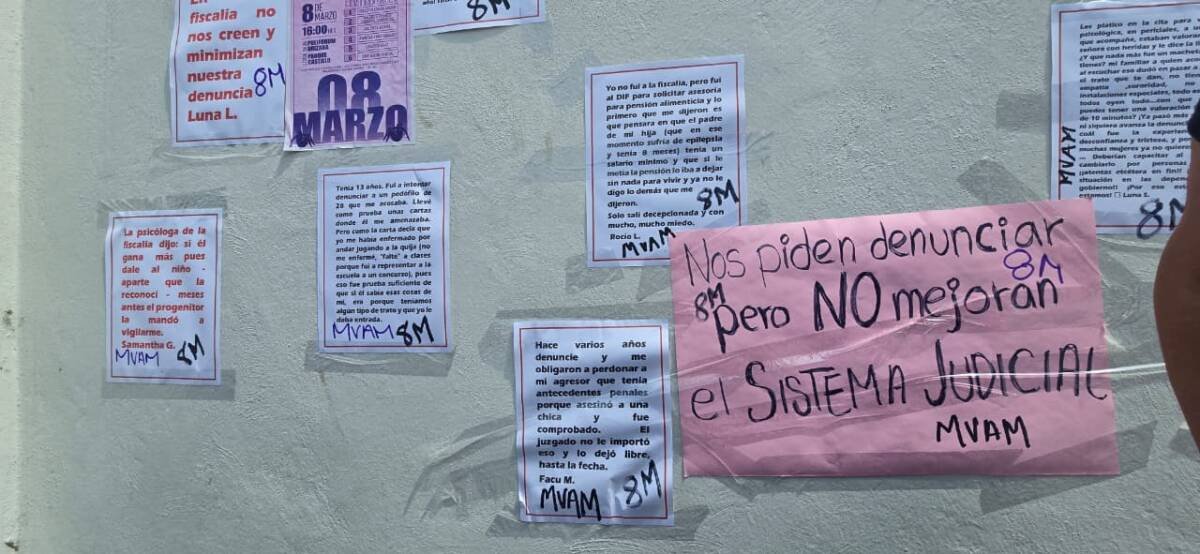 fiscalía no
nos creen y
minimizan
nuestra
denuncia
Luna L.
8M
8 DE
MARZO
16:00
08
MARZO
8M
La psicóloga de la
fiscalía dijo: si él
gana más pues
dale al niño -
aparte que la
reconocí - meses
antes el progenitor
la mandó a
vigilarme.
Samantha G.
MVAM 8M
Tenía 13 años. Fui a intentar
denunciar a un pedófilo de
28 que me acosaba. Llevé
como prueba unas cartas
donde él me amenazaba.
Pero como la carta decía que
yo me había enfermado por
andar jugando a la quija (no
me enfermé, "falté" a clases
porque fui a representar a la
escuela a un concurso), pues
eso fue prueba suficiente de
que si él sabía esas cosas de
mí, era porque teníamos
algún tipo de trato y que yo le
daba entrada.
MVAM 8M
Yo no fui a la fiscalía, pero fui
al DIF para solicitar asesoría
para pensión alimenticia y lo
primero que me dijeron es
que pensara en que el padre
de mi hija (que en ese
momento sufría de epilepsia
y tenía 8 meses) tenía un
salario mínimo y que si le
metía la pensión lo iba a dejar
sin nada para vivir y ya no le
digo lo demás que me
dijeron.
Solo salí decepcionada y con
mucho, mucho miedo.
Rocío L.
8M
MVAM
Hace varios años
denuncie y me
obligaron a perdonar a
mi agresor que tenía
antecedentes penales
porque asesinó a una
chica y fue
comprobado. El
juzgado no le importó
eso y lo dejó libre,
hasta la fecha.
Facu M.
MVAM 8M
Nos piden denunciar
8M
8M
pero NO mejoran
el SISTEMA JUDICIAL
MVAM
Les platico en la cita para
psicológica, en periciales, a
que acompañé, estaban
señora con heridas y le dice la
¿Y que nada más fue un
tienes? mi familiar a quien
al escuchar eso dudó en pasar a
el trato que te dan, no
empatía ,sororidad, no
instalaciones especiales, todo
todos oyen todo...con que
puedes tener una valoración
de 10 minutos? ¡Ya pasó más
ni siquiera avanza la denuncia
cuál fue la
desconfianza y tristeza, y
muchas mujeres ya no
... Deberían capacitar al
cambiarlo por personas
situación en las
gobierno!! ¡Por eso
estamos! Luna S.
MVAM
8M